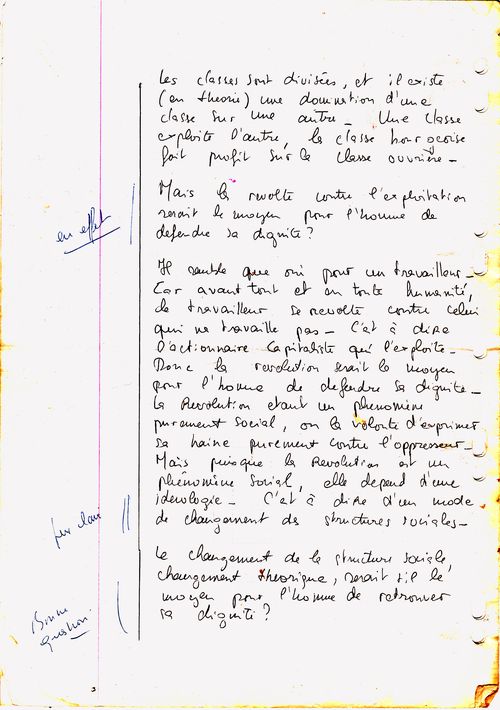 Les classes sont divisées, et il existe
(en theorie) une domination d'une
classe sur une autre - Une classe
exploite l'autre, la classe bourgeoise
fait profit sur la classe ouvrière -
Mais la revolte contre l'exploitation
serait le moyen pour l'homme de
defendre sa dignite?
en effet
Il semble que oui pour un travailleur -
Car avant tout et en toute humanité,
le travailleur se revolte contre celui
qui ne travaille pas - C'est à dire
l'actionnaire capitaliste qui l'exploite -
Donc la revolution serait le moyen
pour l'homme de defendre sa dignite -
La Revolution etant un phenomène
purement social, on la volonte d'exprimer
sa haine purement contre l'oppresseur -
Mais puisque la Revolution est un
phénomène social, elle depend d'une
ideologie - C'est à dire d'un mode
de changement des structures sociales -
peu clair
Le changement de la structure sociale,
changement theorique, serait t-il le
moyen pour l'homme de retrouver
sa dignité?
Bonne
question.